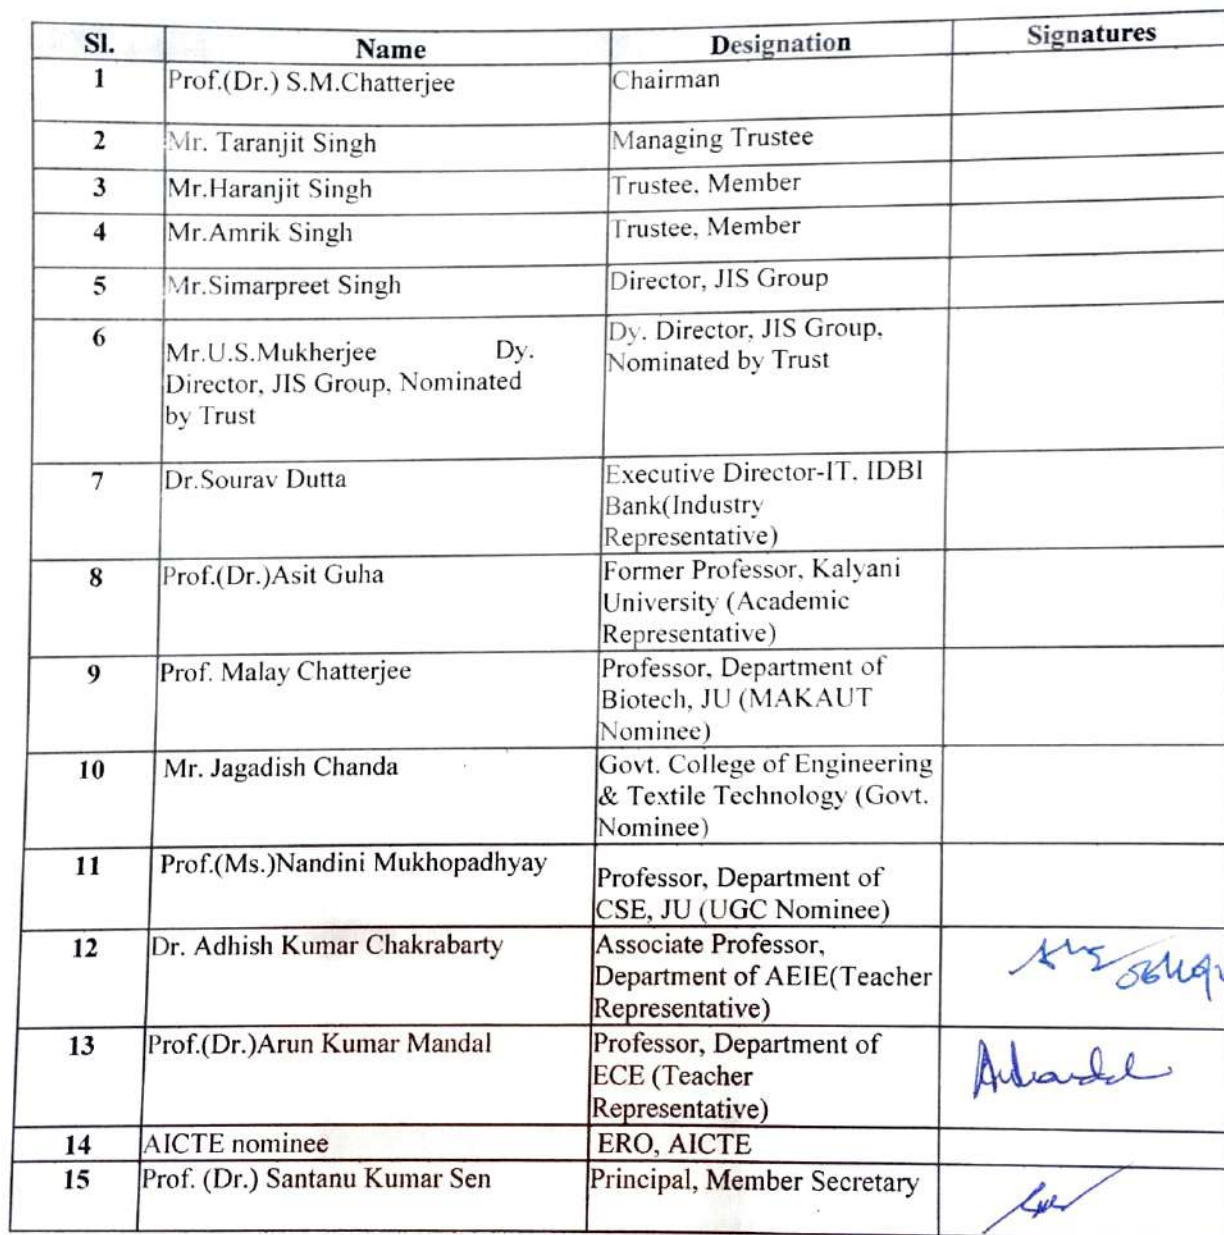 Sl. Name Designation Signatures
1 Prof.(Dr.) S.M.Chatterjee Chairman
2 Mr. Taranjit Singh Managing Trustee
3 Mr.Haranjit Singh Trustee, Member
4 Mr.Amrik Singh Trustee, Member
5 Mr.Simarpreet Singh Director, JIS Group
6 Mr.U.S.Mukherjee Dy.
Director, JIS Group, Nominated
by Trust
Dy. Director, JIS Group,
Nominated by Trust
7 Dr.Sourav Dutta Executive Director-IT, IDBI
Bank(Industry
Representative)
8 Prof.(Dr.)Asit Guha Former Professor, Kalyani
University (Academic
Representative)
9 Prof. Malay Chatterjee Professor, Department of
Biotech, JU (MAKAUT
Nominee)
10 Mr. Jagadish Chanda Govt. College of Engineering
& Textile Technology (Govt.
Nominee)
11 Prof.(Ms.)Nandini Mukhopadhyay Professor, Department of
CSE, JU (UGC Nominee)
12 Dr. Adhish Kumar Chakrabarty Associate Professor,
Department of AEIE(Teacher
Representative)
13 Prof.(Dr.)Arun Kumar Mandal Professor, Department of
ECE (Teacher
Representative)
14 AICTE nominee ERO, AICTE
15 Prof. (Dr.) Santanu Kumar Sen Principal, Member Secretary